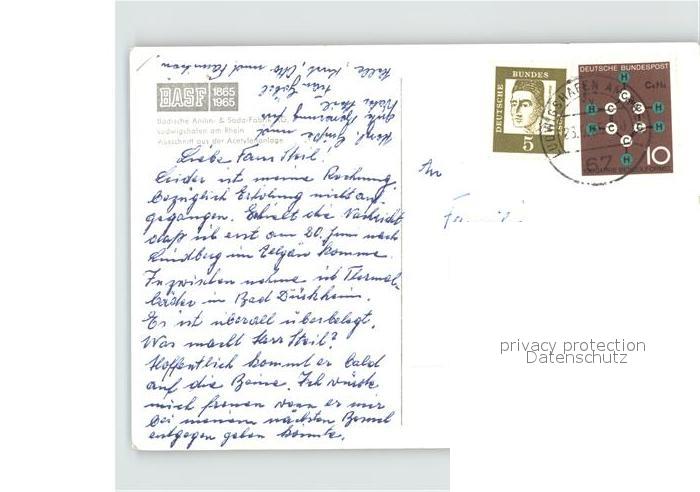 BASF 1865
1965
Badische Anilin- & Soda-Fabrik AG
Ludwigshafen am Rhein
Ausschnitt aus der Acetylenanlage
Liebe Fam Steil!
Leider ist meine Rechnung
bezüglich Erholung nicht auf-
gegangen. Erhielt die Nachricht
daß ich erst am 20. Juni nach
Lindberg im Allgäu komme.
Inzwischen nehme ich Thermal-
bäder in Bad Dürkheim.
Es ist überall überbelegt.
Was macht Herr Steil?
Hoffentlich kommt er bald
auf die Beine. Ich würde
mich freuen wenn er mir
bei meinem nächsten Besuch
entgegen gehen könnte.
Herzl. Grüße und
An
Famili
DEUTSCHE BUNDES
5
DEUTSCHE BUNDESPOST
C6H6
H
C
10
LUDWIGSHAFEN AM
67
privacy protection
Datenschutz